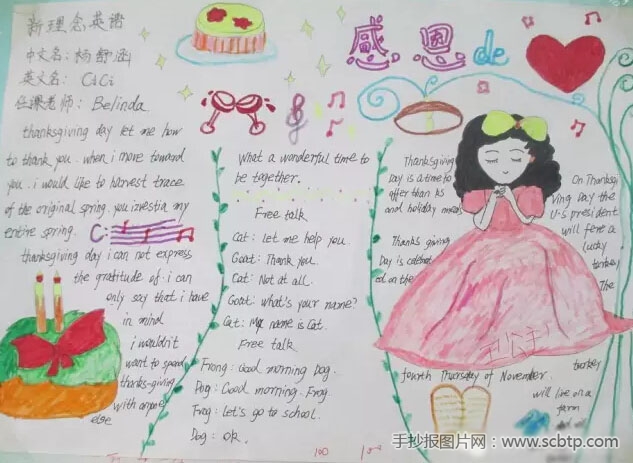 新理念英语
中文名：杨舒涵
英文名：CiCi
任课老师：Belinda
thanksgiving day let me how
to thank you. when i move toward
you. i would like to harvest trace
of the original spring. you investia my
entire spring.
thanksgiving day i can not express
the gratitude of. i can
only say that i have
in mind
i wouldn't
want to spend
thanks-giving
with anyone
else
感恩de
What a wonderful time to
be together.
Free talk
Cat: Let me help you.
Goat: Thank you.
Cat: Not at all.
Goat: What's your name?
Cat: My name is Cat.
Free talk
Frong: Good morning Dog.
Dog: Good morning. Frog
Frog: Let's go to school.
Dog: ok.
Thanksgiving
Day is a time to
offer than ks
and holiday meals
Thanks giving
Day is celebrat
ed on the
fourth Thursday of November.
On Thanksgi
ving Day the
U.S president
will fere a
lucky
turkey
The
turkey
will live on a
farm
100
手抄报图片网：www.scbtp.com